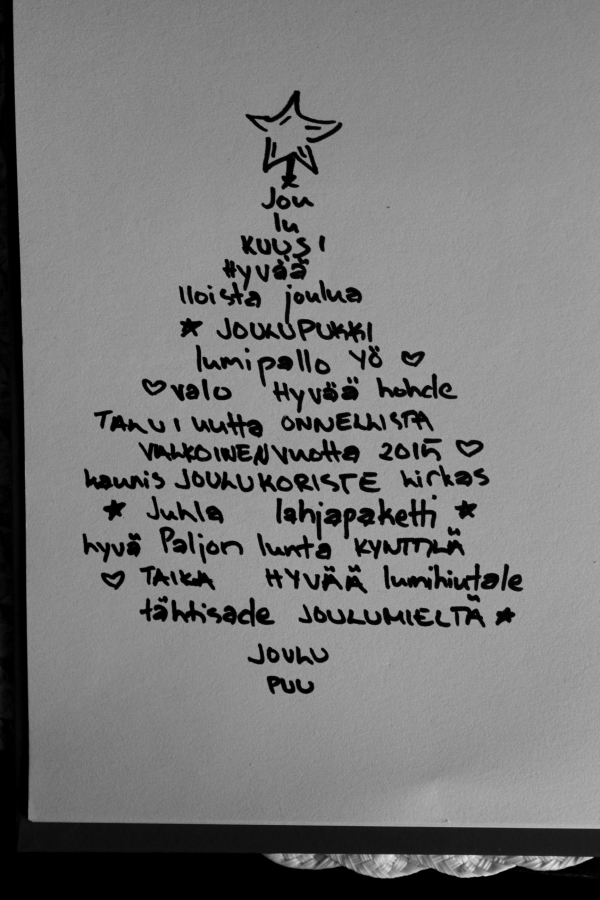 Jou
lu
KUUSI
Hyvää
Iloista joulua
★ JOULUPUKKI
lumipallo YÖ ♡
♡ valo Hyvää hohde
TALVI uutta ONNELLISTA
VALKOINEN vuotta 2015 ♡
kaunis JOULUKORISTE kirkas
★ Juhla lahjapaketti ★
hyvä Paljon lunta KYNTTILÄ
♡ TAIKA HYVÄÄ lumihiutale
tähtisade JOULUMIELTÄ ★
JOULU
PUU